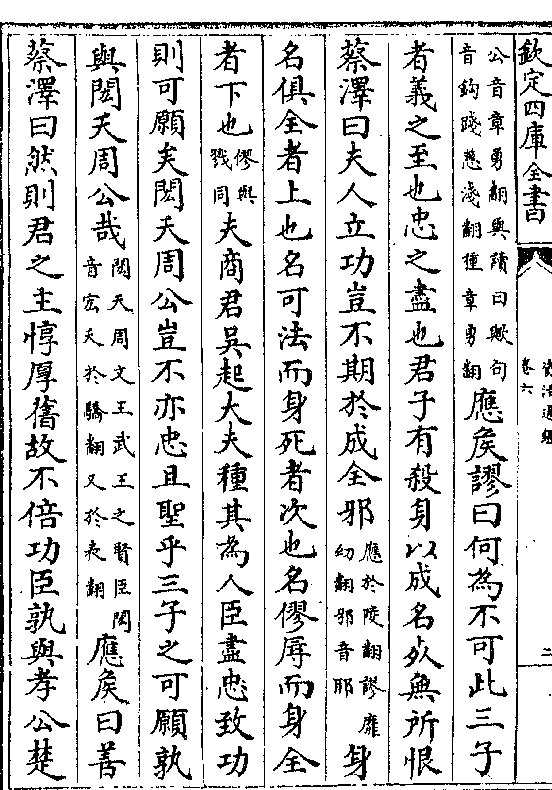 欽定四庫全書
資治通鑑
卷六
二
公音章勇翻與讀曰歟句
音鉤踐慈淺翻種章勇翻
應矦謬曰何為不可此三子
者義之至也忠之盡也君子有殺身以成名死無所恨
蔡澤曰夫人立功豈不期於成全邪
應於陵翻謬靡
幼翻邪音耶
身
名俱全者上也名可法而身死者次也名僇辱而身全
者下也
僇與
戮同
夫商君吳起大夫種其為人臣盡忠致功
則可願矣閎夭周公豈不亦忠且聖乎三子之可願孰
與閎夭周公哉
閎夭周文王武王之賢臣閎
音宏夭於驕翻又於表翻
應矦曰善
蔡澤曰然則君之主惇厚舊故不倍功臣孰與孝公楚